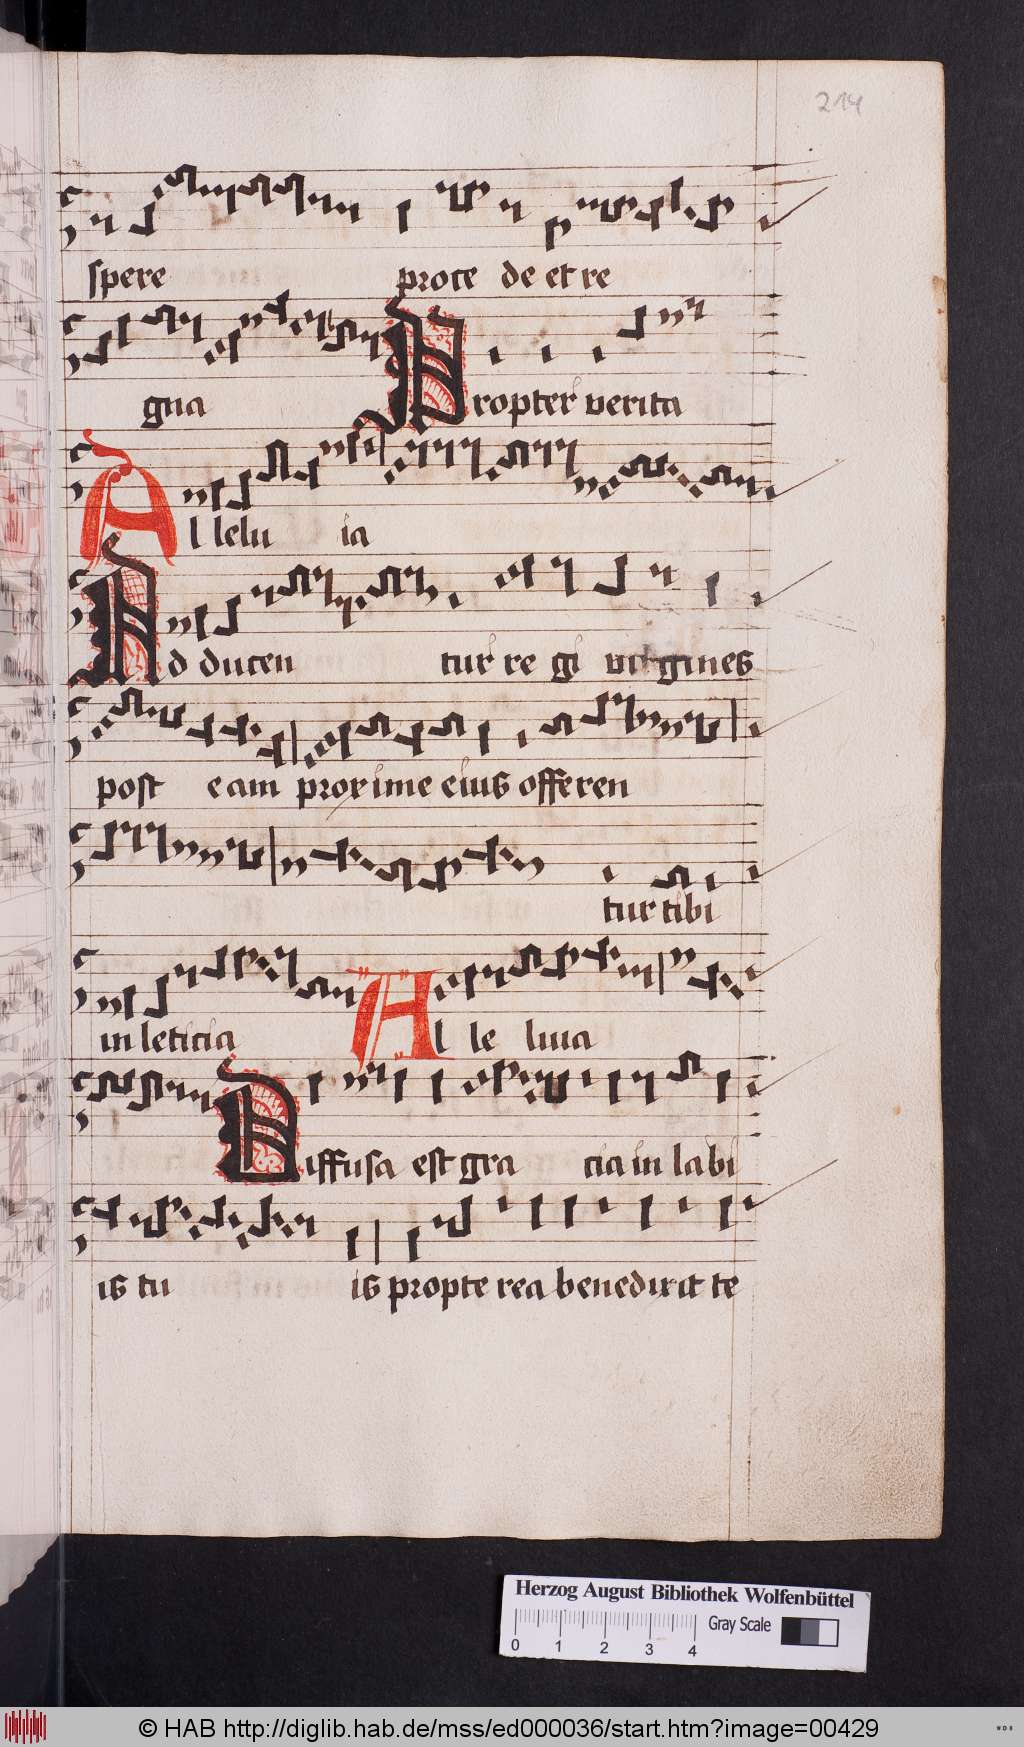 214
spere prote de et re
gna Propter verita
Al lelu ia
Ad ducen tur re gi virgines
post eam proxime eius offeren
tur tibi
in leticia Al le luia
Diffusa est gra cia in labi
is tu is propte rea benedixit te
Herzog August Bibliothek Wolfenbüttel
Gray Scale
0 1 2 3 4
© HAB http://diglib.hab.de/mss/ed000036/start.htm?image=00429